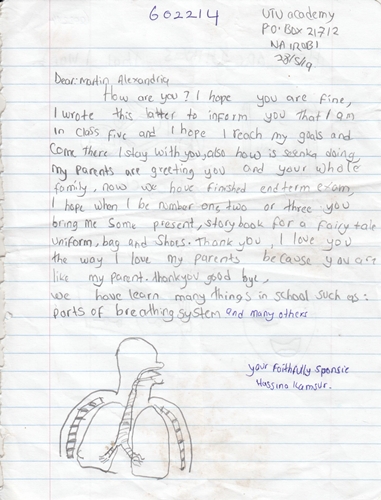 602214
UTU academy
P.O. BOX 21712
NAIROBI
28/5/19
Dear: Martin Alexandria
How are you? I hope you are fine,
I wrote this latter to inform you that I am
in class five and I hope I reach my goals and
Come there I stay with you, also how is doing
my parents are greeting you and your whole
family, now we have finished endterm exam,
I hope when I be number one, two or three you
bring me some present, storybook for a fairy tale
uniform, bag and shoes. Thank you, I love you
the way I love my parents because you are
like my parent. thankyou good bye,
we have learn many things in school such as:
parts of breathing system and many others
your faithfully sponsie
Hassina